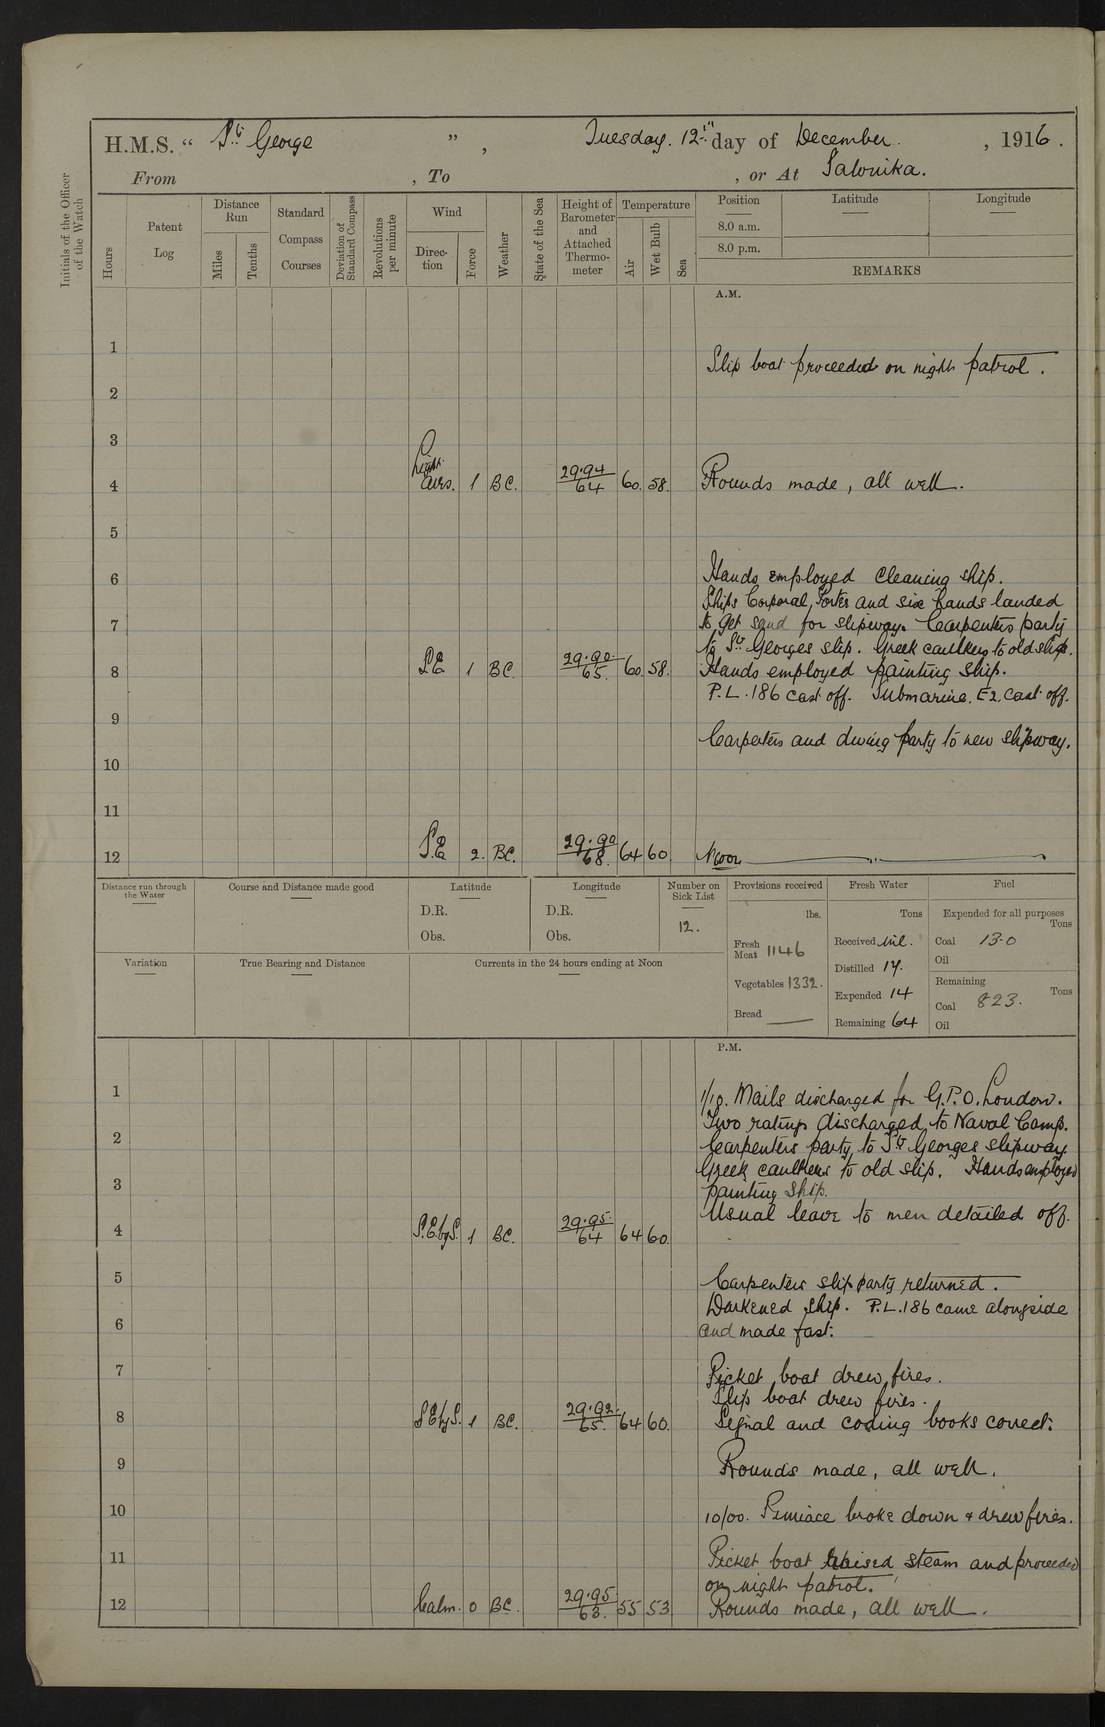 H.M.S. “ St. George ” , Tuesday. 12th day of December. , 1916.
From , To , or At Salonika.
Initials of the Officer of the Watch
Hours
Patent Log
Distance Run
Miles
Tenths
Standard Compass Courses
Deviation of Standard Compass
Revolutions per minute
Wind
Direc- tion
Force
Weather
State of the Sea
Height of Barometer and Attached Thermo- meter
Temperature
Air
Wet Bulb
Sea
Position
Latitude
Longitude
8.0 a.m.
8.0 p.m.
REMARKS
A.M.
1
Slip boat proceeded on night patrol.
2
3
4 Light airs. 1 BC. 29.94 64 60. 58. Rounds made, all well.
5
6 Hands employed cleaning ship.
Ships Corporal, and six hands landed
7 to get sand for slipway. Carpenters party
to St. Georges slip. Greek caulkers to old slip.
8 S.E 1 BC. 29.90 65. 60. 58. Hands employed painting ship.
P.L. 186 cast off. Submarine. E2. cast off.
9
Carpenters and diving party to new slipway.
10
11
12 S.E 2. BC. 29.90 68. 64 60. Noon
Distance run through the Water
Course and Distance made good
Latitude
D.R.
Obs.
Longitude
D.R.
Obs.
Number on Sick List
12.
Provisions received
lbs.
Fresh Meat 1146
Vegetables 1332.
Bread
Fresh Water
Tons
Received Nil.
Distilled 14.
Expended 14
Remaining 64
Fuel
Expended for all purposes
Tons
Coal 13.0
Oil
Remaining
Tons
Coal 823.
Oil
Variation
True Bearing and Distance
Currents in the 24 hours ending at Noon
P.M.
1 1/10. Mails discharged for G.P.O. London.
Two ratings discharged to Naval Camp.
2 Carpenters party to St. Georges slipway.
Greek caulkers to old slip. Hands employed
3 painting ship.
Usual leave to men detailed off.
4 S.E.byS. 1 BC. 29.95. 64 64 60.
5 Carpenters slip party returned.
Darkened ship. P.L. 186 came alongside
6 and made fast.
7 Picket boat drew fires.
Slip boat drew fires.
8 SEbyS. 1 BC. 29.92. 65. 64 60. Signal and coding books correct.
9 Rounds made, all well.
10 10/00. Pinnace broke down & drew fires.
11 Picket boat raised steam and proceeded
on night patrol.
12 Calm. 0 BC. 29.95 63. 55 53 Rounds made, all well.